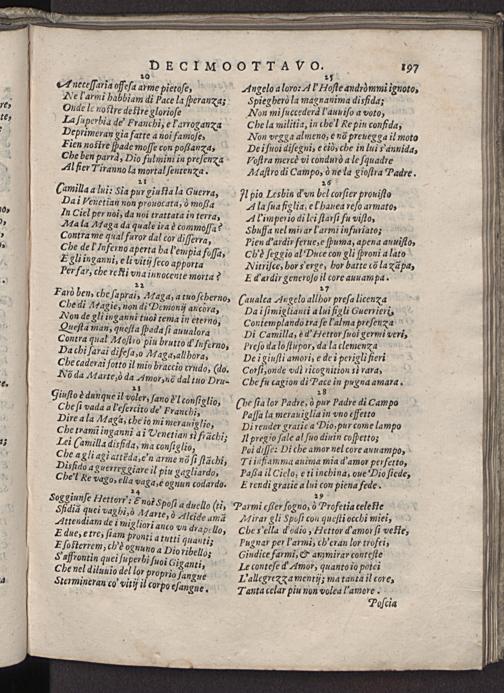 DECIMOOTTAVO. 197
20
A necessaria offesa arme pietose,
Ne l'armi habbiam di Pace la speranza;
Onde le nostre destre gloriose
La superbia de' Franchi, e l'arroganza
Deprimeran gia fatte a noi famose,
Fien nostre spade mosse con possanza,
Che ben parrà, Dio fulmini in presenza
Al fier Tiranno la mortal sentenza.
21
Camilla a lui: Sia pur giusta la Guerra,
Da i Venetian non prouocata, ò mossa
In Ciel per noi, da noi trattata in terra,
Ma la Maga da quale ira è commossa?
Contra me qual furor dal cor disserra,
Che de l'Inferno aperta ha l'empia fossa,
E gli inganni, e li vitij seco apporta
Per far, che resti vna innocente morta?
22
Farò ben, che saprai, Maga, a tuo scherno,
Che di Magie, non di Demonij ancora,
Non de gli inganni tuoi tema in eterno,
Questa man, questa spada si auualora
Contra qual Mostro piu brutto d'Inferno,
Da chi sarai difesa, o Maga, allhora,
Che caderai sotto il mio braccio crudo, (do.
Nō da Marte, ò da Amor, nō dal tuo Dru-
23
Giusto è dunque il voler, sano è'l consiglio,
Che si vada a l'esercito de' Franchi,
Dire a la Maga, che io mi merauiglio,
Che trami inganni a i Venetian sì frāchi;
Lei Camilla disfida, ma consiglio,
Che a gli agi attēda, e'n arme nō si stāchi,
Disfido a guerreggiare il piu gagliardo,
Che'l Re vago, ella vaga, e ognun codardo.
24
Soggiunse Hettorr': E noi Sposi a duello (ti,
Sfidiā quei vaghi, ò Marte, ò Alcide amā
Attendiam de i migliori anco vn drapello,
E due, e tre, siam pronti a tutti quanti;
E sosterrem, ch'è ognuno a Dio ribello;
S'affrontin quei superbi suoi Giganti,
Che nel diluuio del lor proprio sangue
Stermineran co' vitij il corpo esangue.
25
Angelo a loro: A l'Hoste andrò mmi ignoto,
Spiegherò la magnanima disfida;
Non mi succederà l'auuiso a voto,
Che la militia, in che'l Re piu confida,
Non vegga almeno, e nō preuegga il moto
De i suoi disegni, e ciò, che in lui s'annida,
Vostra mercè vi condurò a le squadre
Mastro di Campo, ò ne la giostra Padre.
26
Il pio Lesbin d'vn bel corsier prouisto
A la sua figlia, e l'hauea reso armato,
A l'imperio di lei starsi fu visto,
Sbuffa nel mirar l'armi infuriato;
Pien d'ardir ferue, e spuma, apena auuisto,
Ch'è seggio al Duce con gli sproni a lato
Nitrisce, hor s'erge, hor batte cō la zāpa,
E d'ardir generoso il core auuampa.
27
Caualca Angelo allhor presa licenza
Da i simiglianti a lui figli Guerrieri,
Contemplando tra se l'alma presenza
Di Camilla, è d'Hettor suoi germi veri,
Preso da lo stupor, da la clemenza
De i giusti amori, e de i perigli fieri
Corsi, onde vdì ricognition sì rara,
Che fu cagion di Pace in pugna amara.
28
Che sia lor Padre, ò pur Padre di Campo
Passa la merauiglia in vno effetto
Di render gratie a Dio, pur come lampo
Il pregio sale al suo diuin cospetto;
Poi disse: Di che amor nel core auuampo,
Ti infiamma anima mia d'amor perfetto,
Passa il Cielo, e ti inchina, oue Dio siede,
E rendi gratie a lui con piena fede.
29
Parmi esser sogno, ò Profetia celeste
Mirar gli Sposi con questi occhi miei,
Che s'ella d'odio, Hettor d'amor si veste,
Pugnar per l'armi, ch'eran lor trofei,
Giudice farmi, & ammirar conteste
Le contese d'Amor, quanto io potei
L'allegrezza mentij; ma tanta il core,
Tanta celar piu non volea l'amore.
Poscia